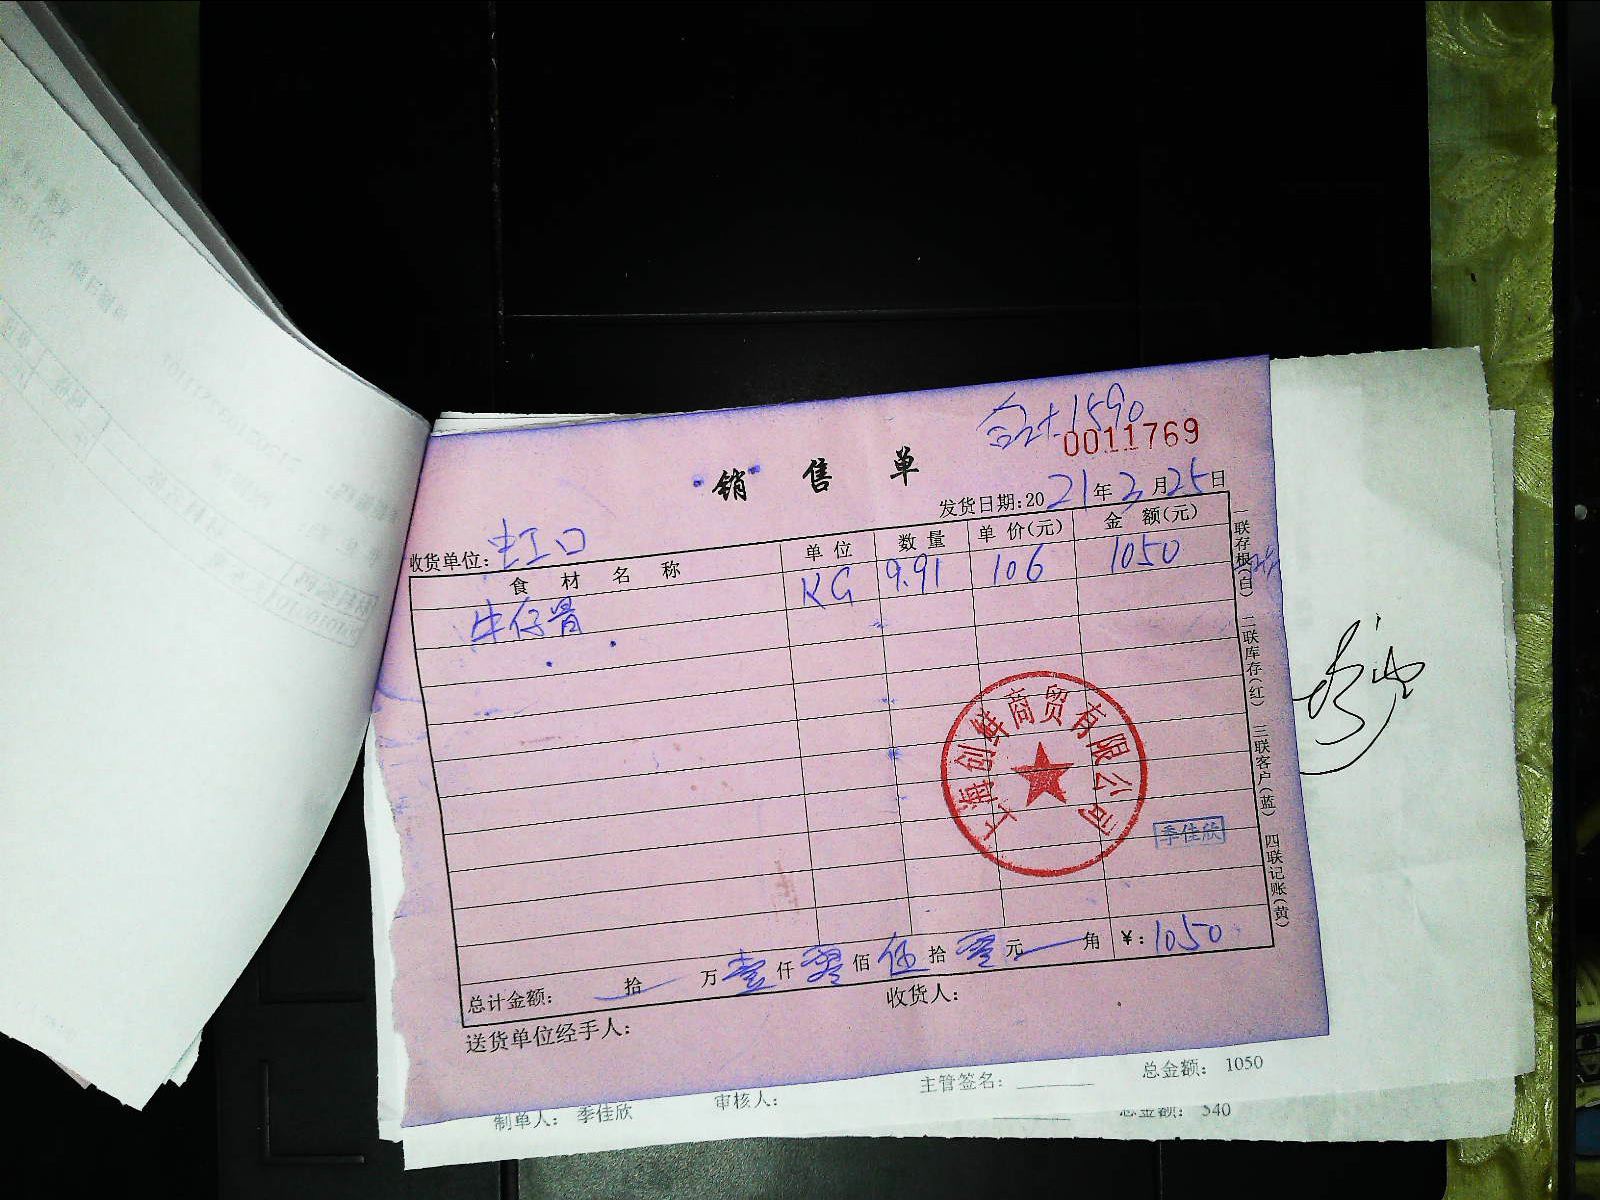 合计1590
0011769
销售单
发货日期:2021年3月25日
收货单位:虹口
食材名称 单位 数量 单价(元) 金额(元)
牛仔骨 KG 9.91 106 1050
上海创鲜商贸有限公司
季佳欣
总计金额: 拾 万壹仟零佰伍拾零元 角 ¥:1050
送货单位经手人: 收货人:
一联存根(白) 二联库存(红) 三联客户(蓝) 四联记账(黄)
主管签名: 总金额: 1050
制单人: 季佳欣 审核人: 总金额: 540